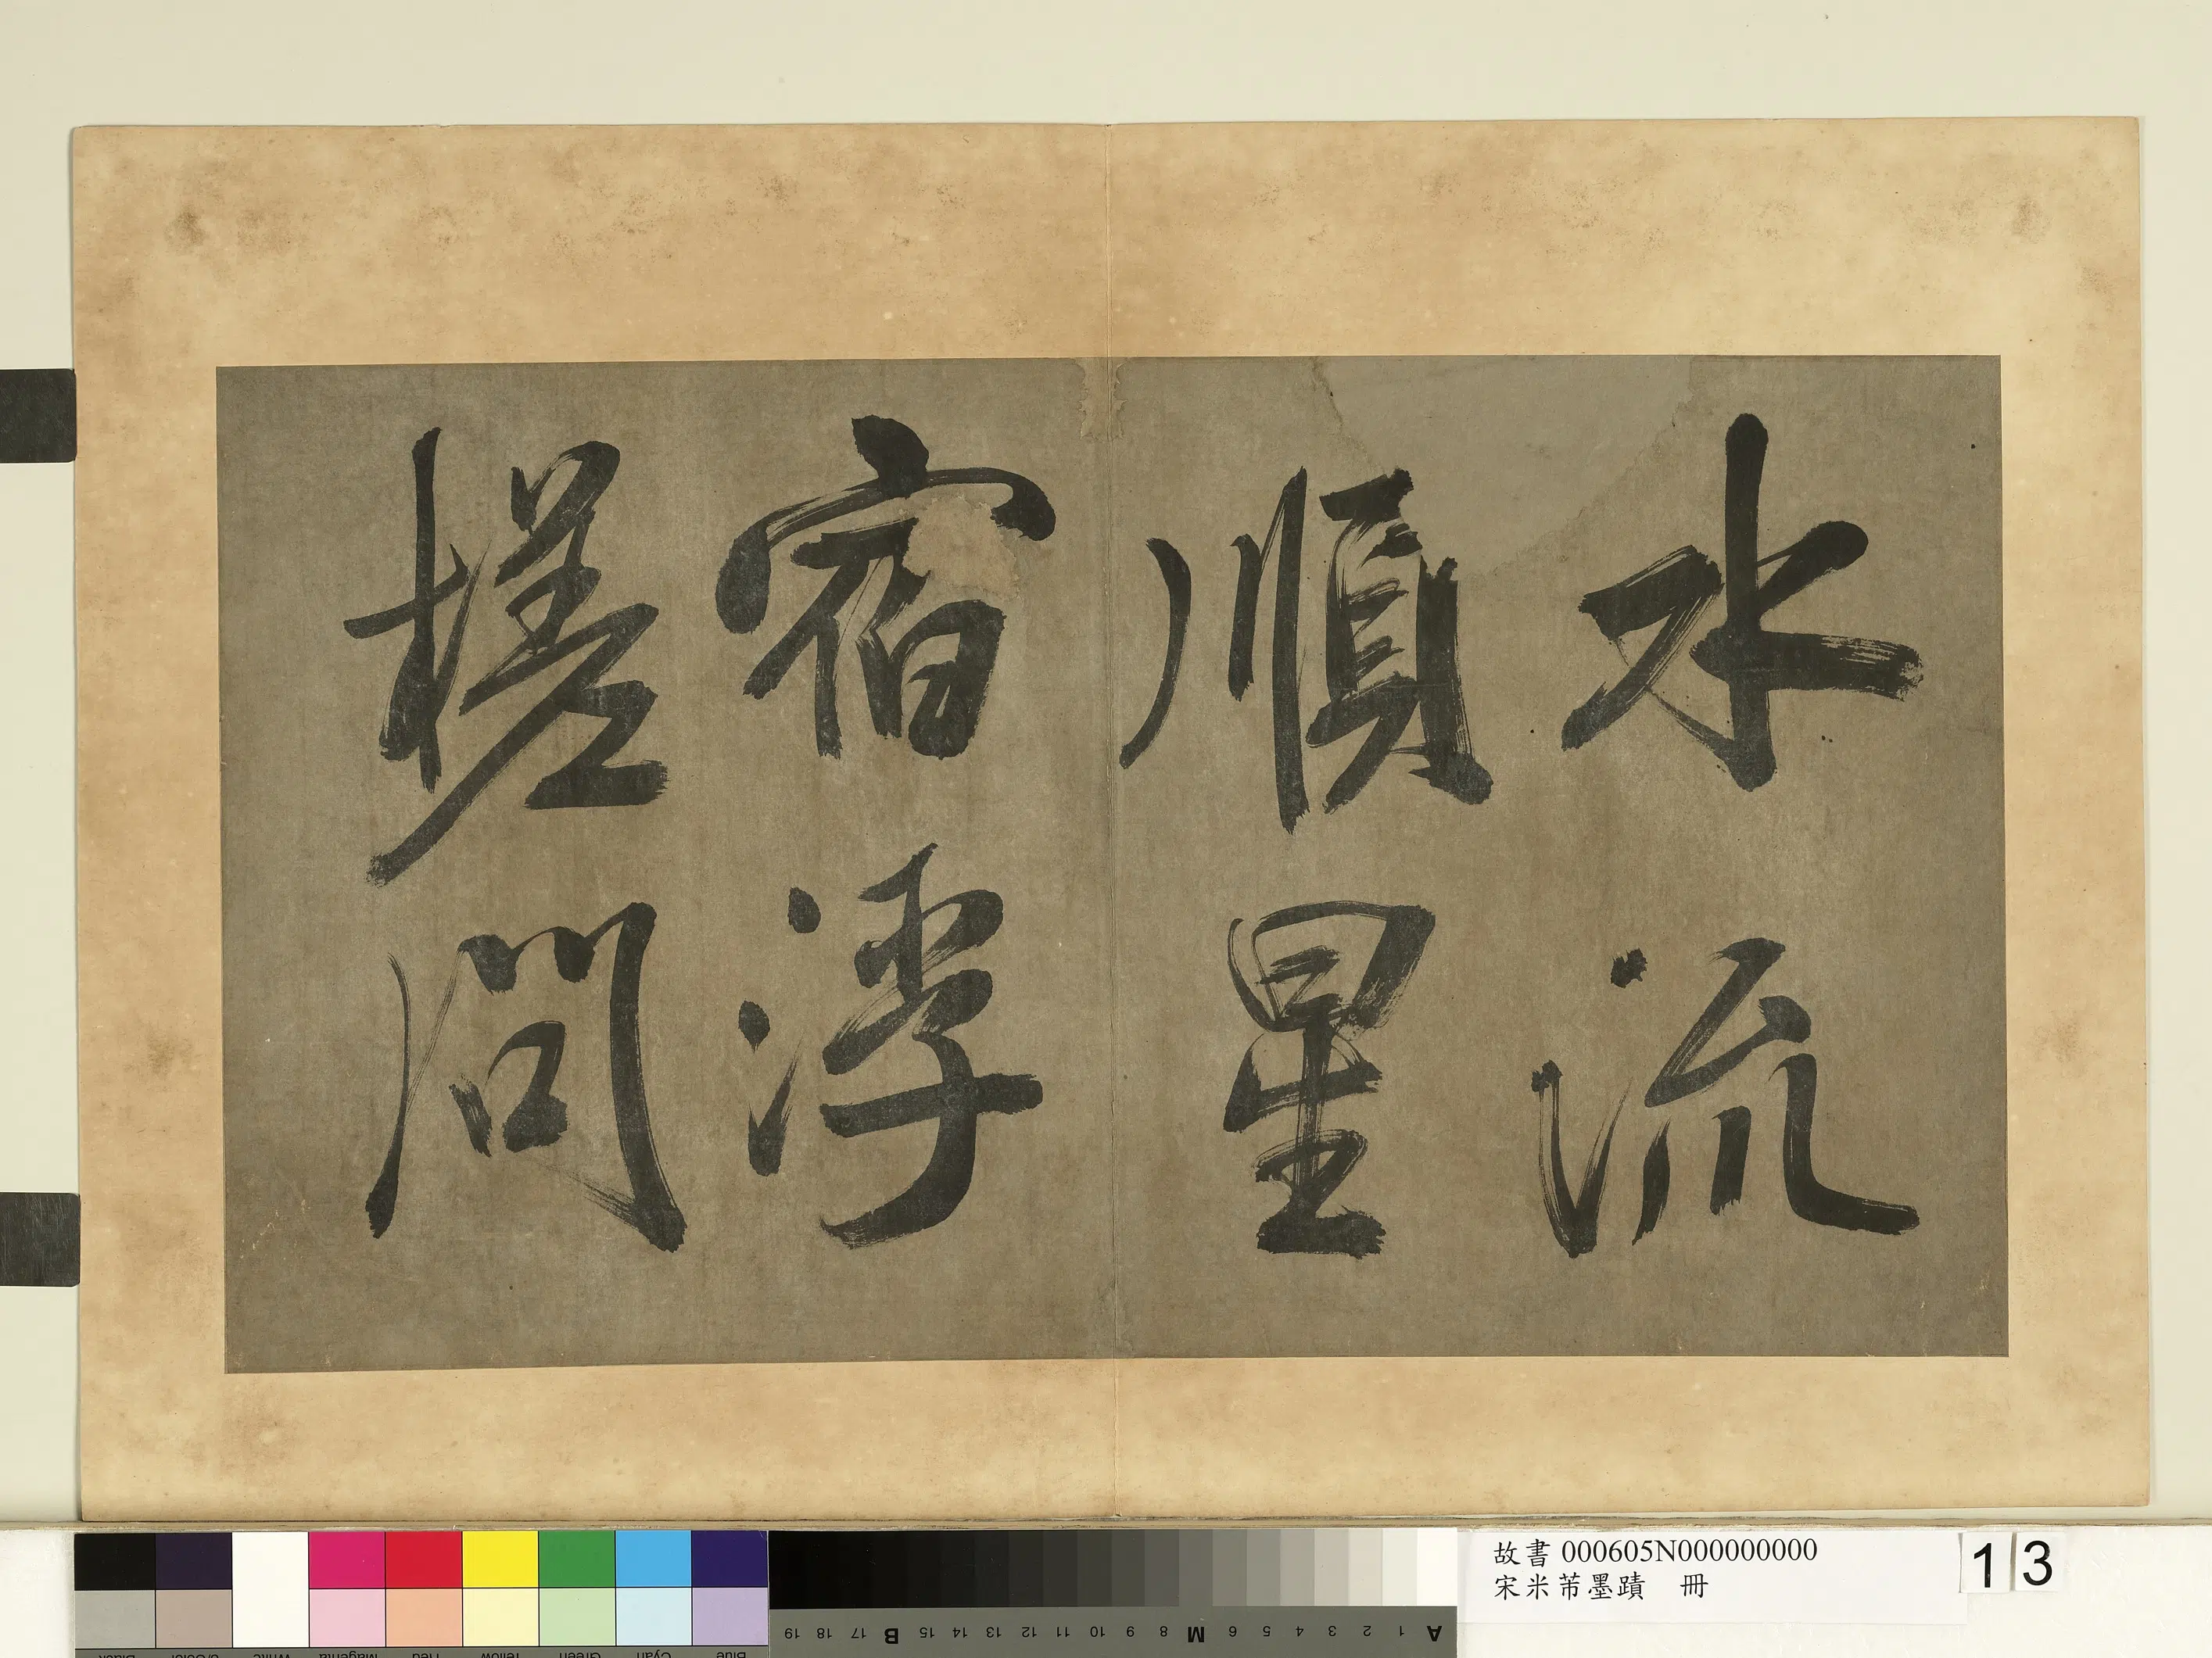 水流
順星
宿浮
槎問
故書 000605N000000000
宋米芾墨蹟 冊
13
A 1 2 3 4 5 6 M 8 9 10 11 12 13 14 15 B 17 18 19
Blue Cyan Green Yellow Red Magenta White 3/Color Black